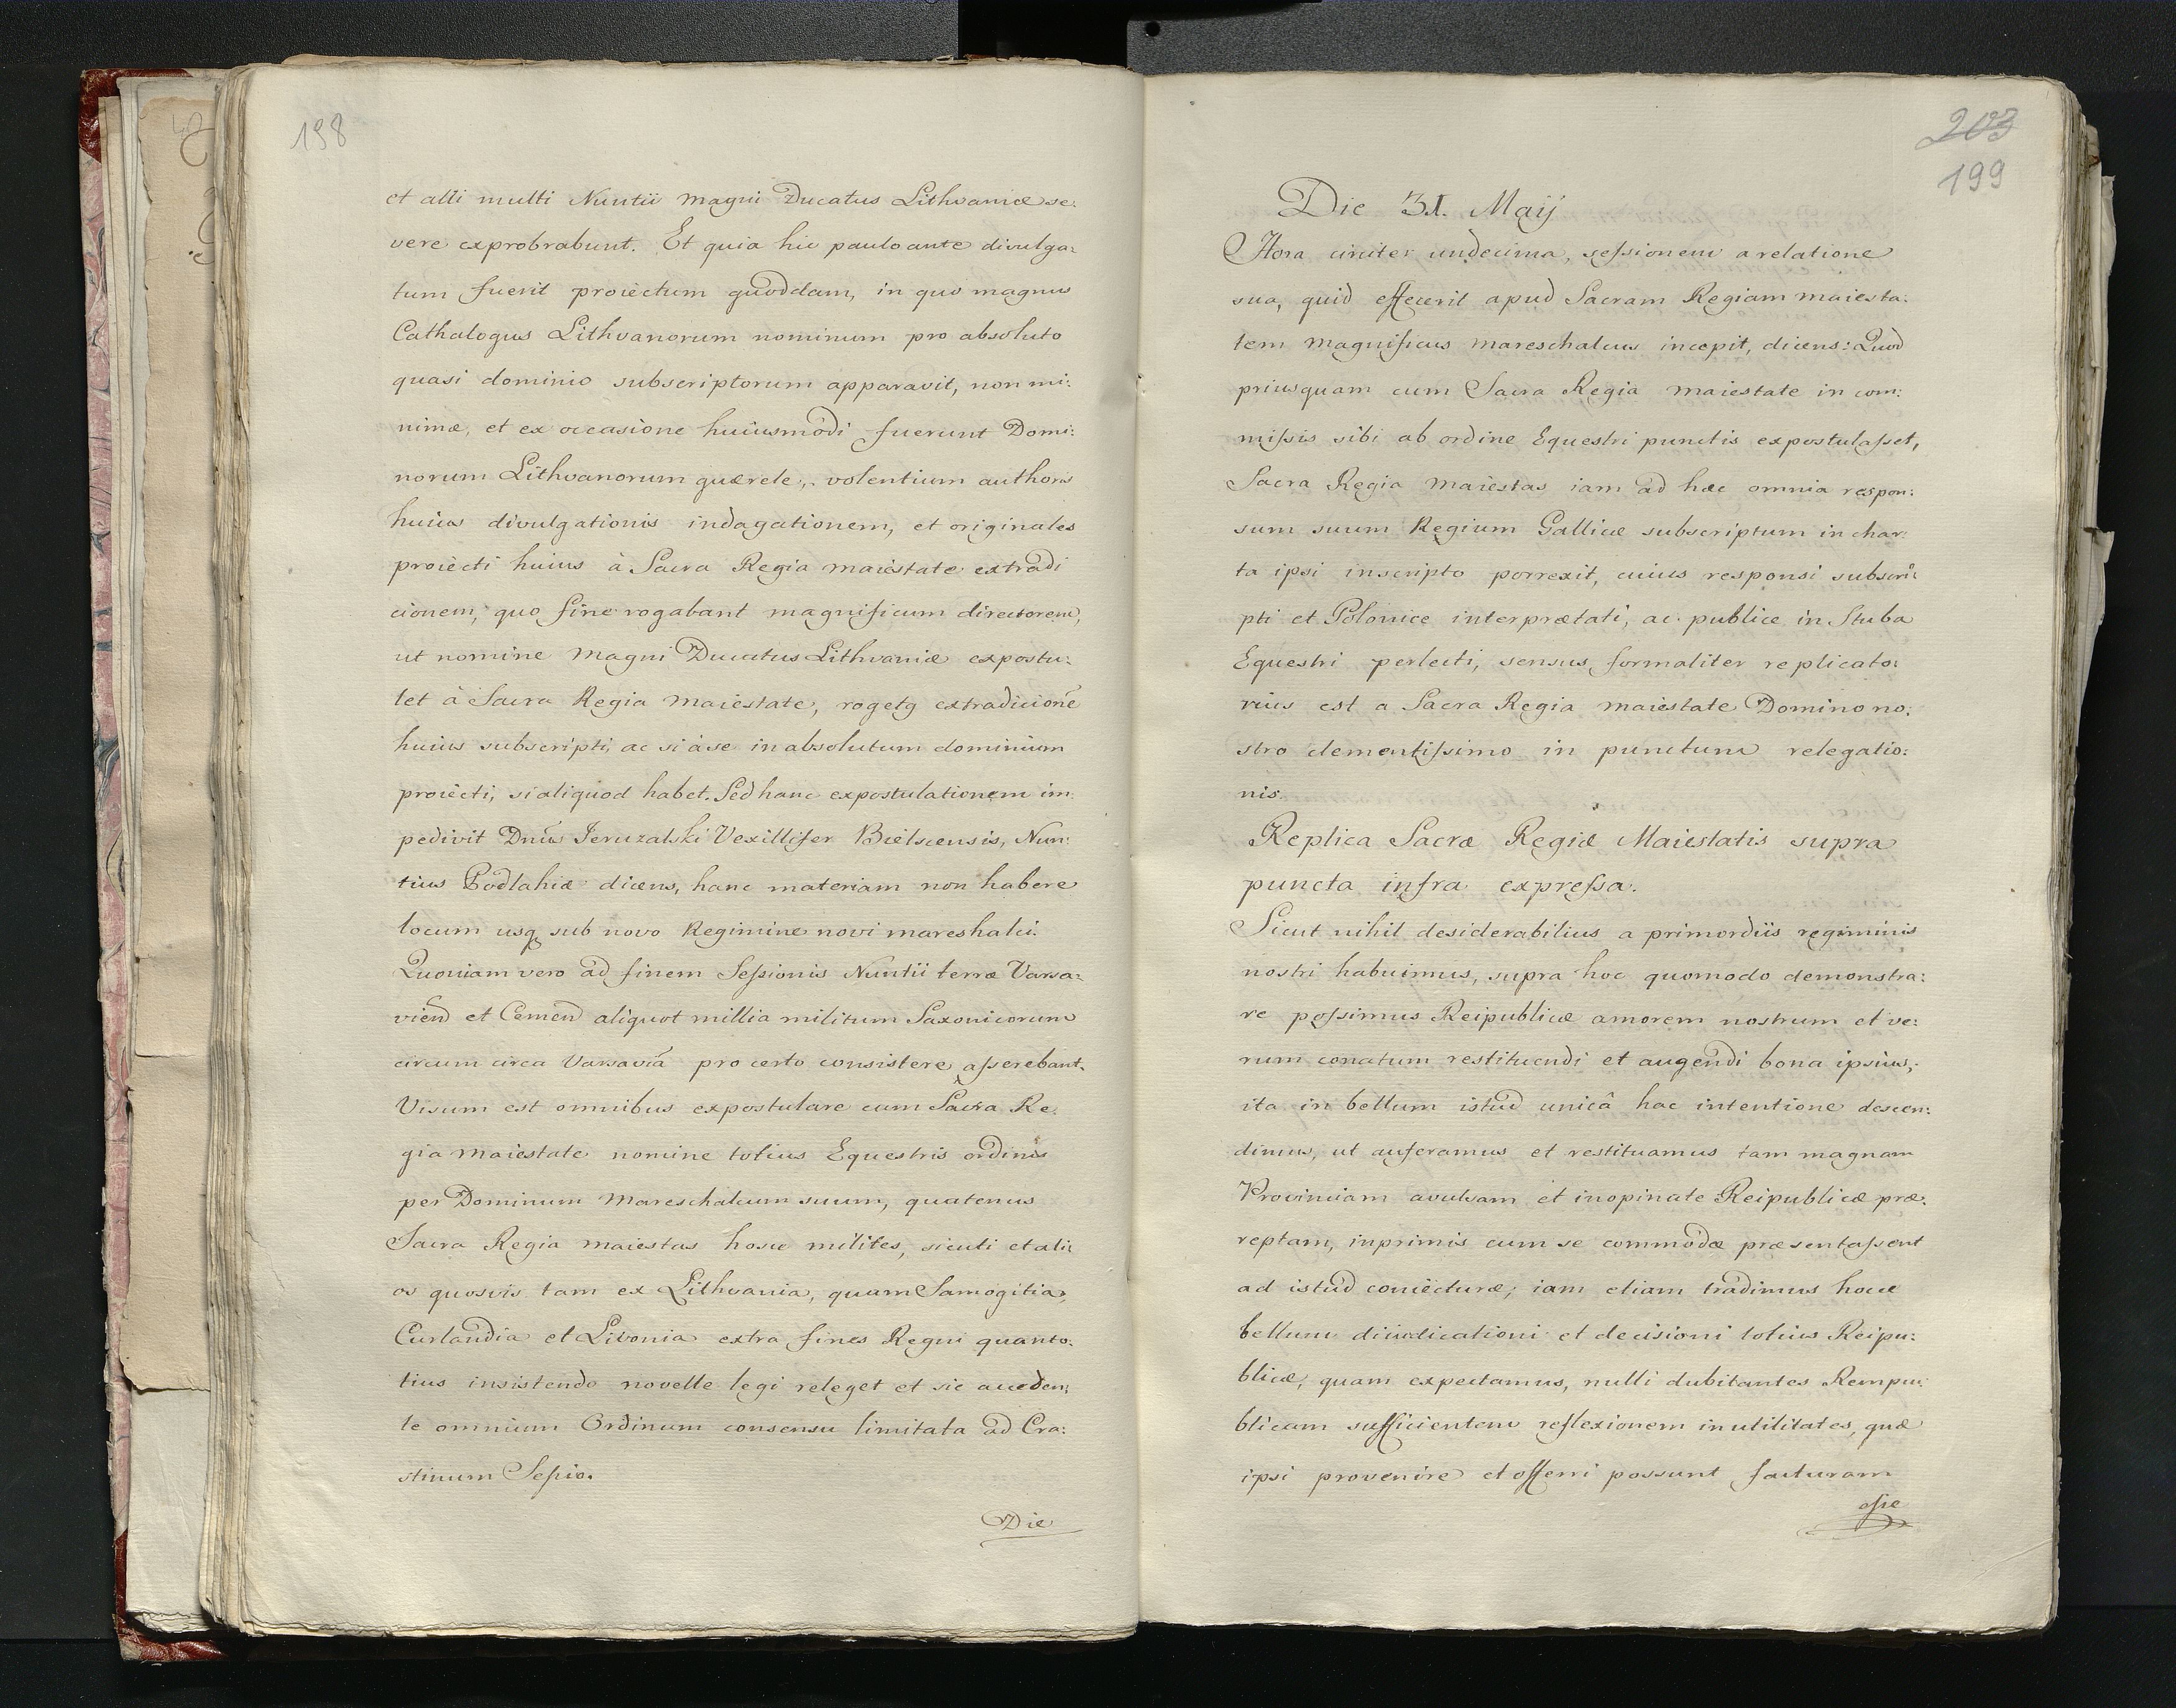 198
et alii multi Nuntii magni Ducatus Lithvaniæ se:
vere exprobrabunt. Et quia hic paulo ante divulga:
tum fuerit proiectum quoddam, in quo magnus
Cathalogus Lithvanorum nominum pro absoluto
quasi dominio subscriptorum apparavit, non mi:
nimæ, et ex occasione huiusmodi fuerunt Domi:
norum Lithvanorum quærele, volentium authoris
huius divulgationis indagationem, et originales
proiecti huius à Sacra Regia maiestate extradi
cionem, quo fine rogabant magnificum directorem,
ut nomine Magni Ducatus Lithvaniæ expostu:
let à Sacra Regia Maiestate, rogetq extradicionē
huius subscripti, ac si à se in absolutum dominium
proiecti, si aliquod habet. Sed hanc expostulationem im:
pedivit Dnūs Jeruzalski Vexillifer Bielscensis, Nun:
tius Podlahiæ dicens, hanc materiam non habere
locum usq sub novo Regimine novi mareshalci.
Quoniam vero ad finem Seſsionis Nuntii terræ Varsa:
vien et Cernen aliquot millia militum Saxonicorum
circum circa Varsaviā pro certo consistere aſserebant.
Visum est omnibus expostulare cum Sacra Re:
gia Maiestate nomine totius Equestris ordinis
per Dominum Mareschalcum suum, quatenus
Sacra Regia maiestas hosce milites, sicuti et ali:
os quosvis tam ex Lithvania, quam Samogitia,
Curlandia et Livonia extra fines Regni quanto:
tius insistendo novelle legi releget et sic acceden:
te omnium Ordinum consensu limitata ad Cra:
stinum Seſsio.
Die
203
199
Die 31. Maij
Hora circiter undecima, seſsionem a relatione
sua, quid effecerit apud Sacram Regiam maiesta:
tem magnificus mareschalcus incepit, dicens: Quod
priusquam cum Sacra Regia Maiestate in com:
miſsis sibi ab ordine Equestri punctis expostulaſset,
Sacra Regia Maiestas iam ad hæc omnia respon:
sum suum Regium Gallicæ subscriptum in char:
ta ipsi inscripto porrexit, cuius responsi subscri:
pti et Polonice interprætati, ac publice in Stuba
Equestri perlecti, sensus, formaliter replicato:
rius est a Sacra Regia maiestate Domino no:
stro clementiſsimo in punctum relegatio:
nis.
Replica Sacræ Regiæ Maiestatis supra
puncta infra expreſsa.
Sicut nihil desiderabilius a primordiis regiminis
nostri habuimus, supra hoc quomodo demonstra:
re poſsimus Reipublicæ amorem nostrum et ve:
rum conatum restituendi et augendi bona ipsius,
ita in bellum istud unicâ hac intentione descen:
dimus, ut auferamus et restituamus tam magnam
Provinciam avulsam et inopinate Reipublicæ præ:
reptam, inprimis cum se commodæ præsentaſsent
ad istud coniecturæ; iam etiam tradimus hocce
bellum diiudicationi et decisioni totius Reipu:
blicæ, quam expectamus, nulli dubitantes Rempu:
blicam sufficientem reflexionem in utilitates, quæ
ipsi provenire et offerri possunt facturam
eſse